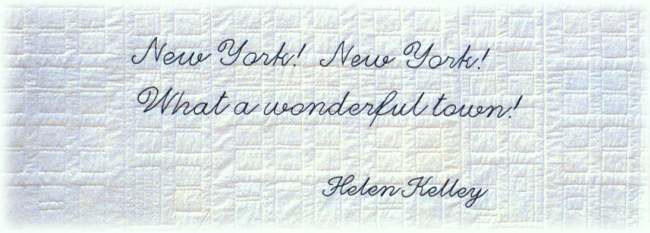 New York! New York!
What a wonderful town!
Helen Kelley